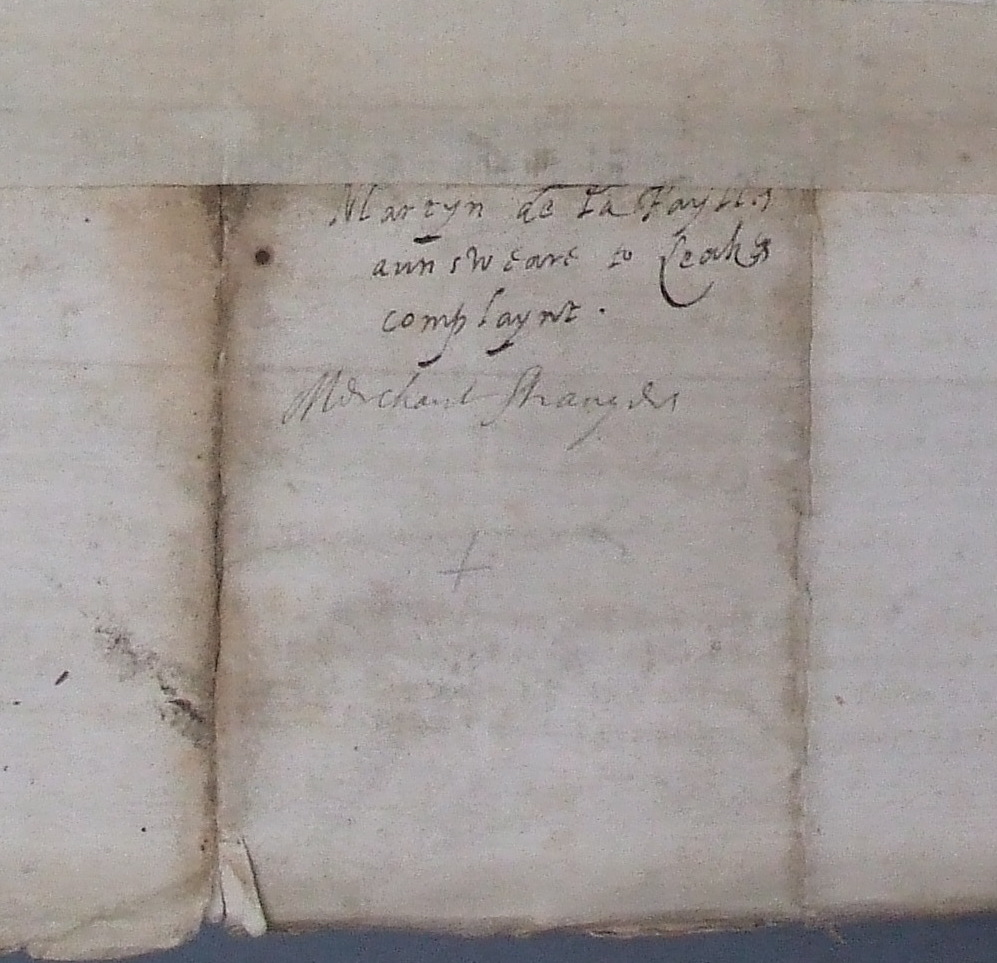 Martyn de la Faylles
aunsweare to Leakes
complaynt.
Merchant Strangers